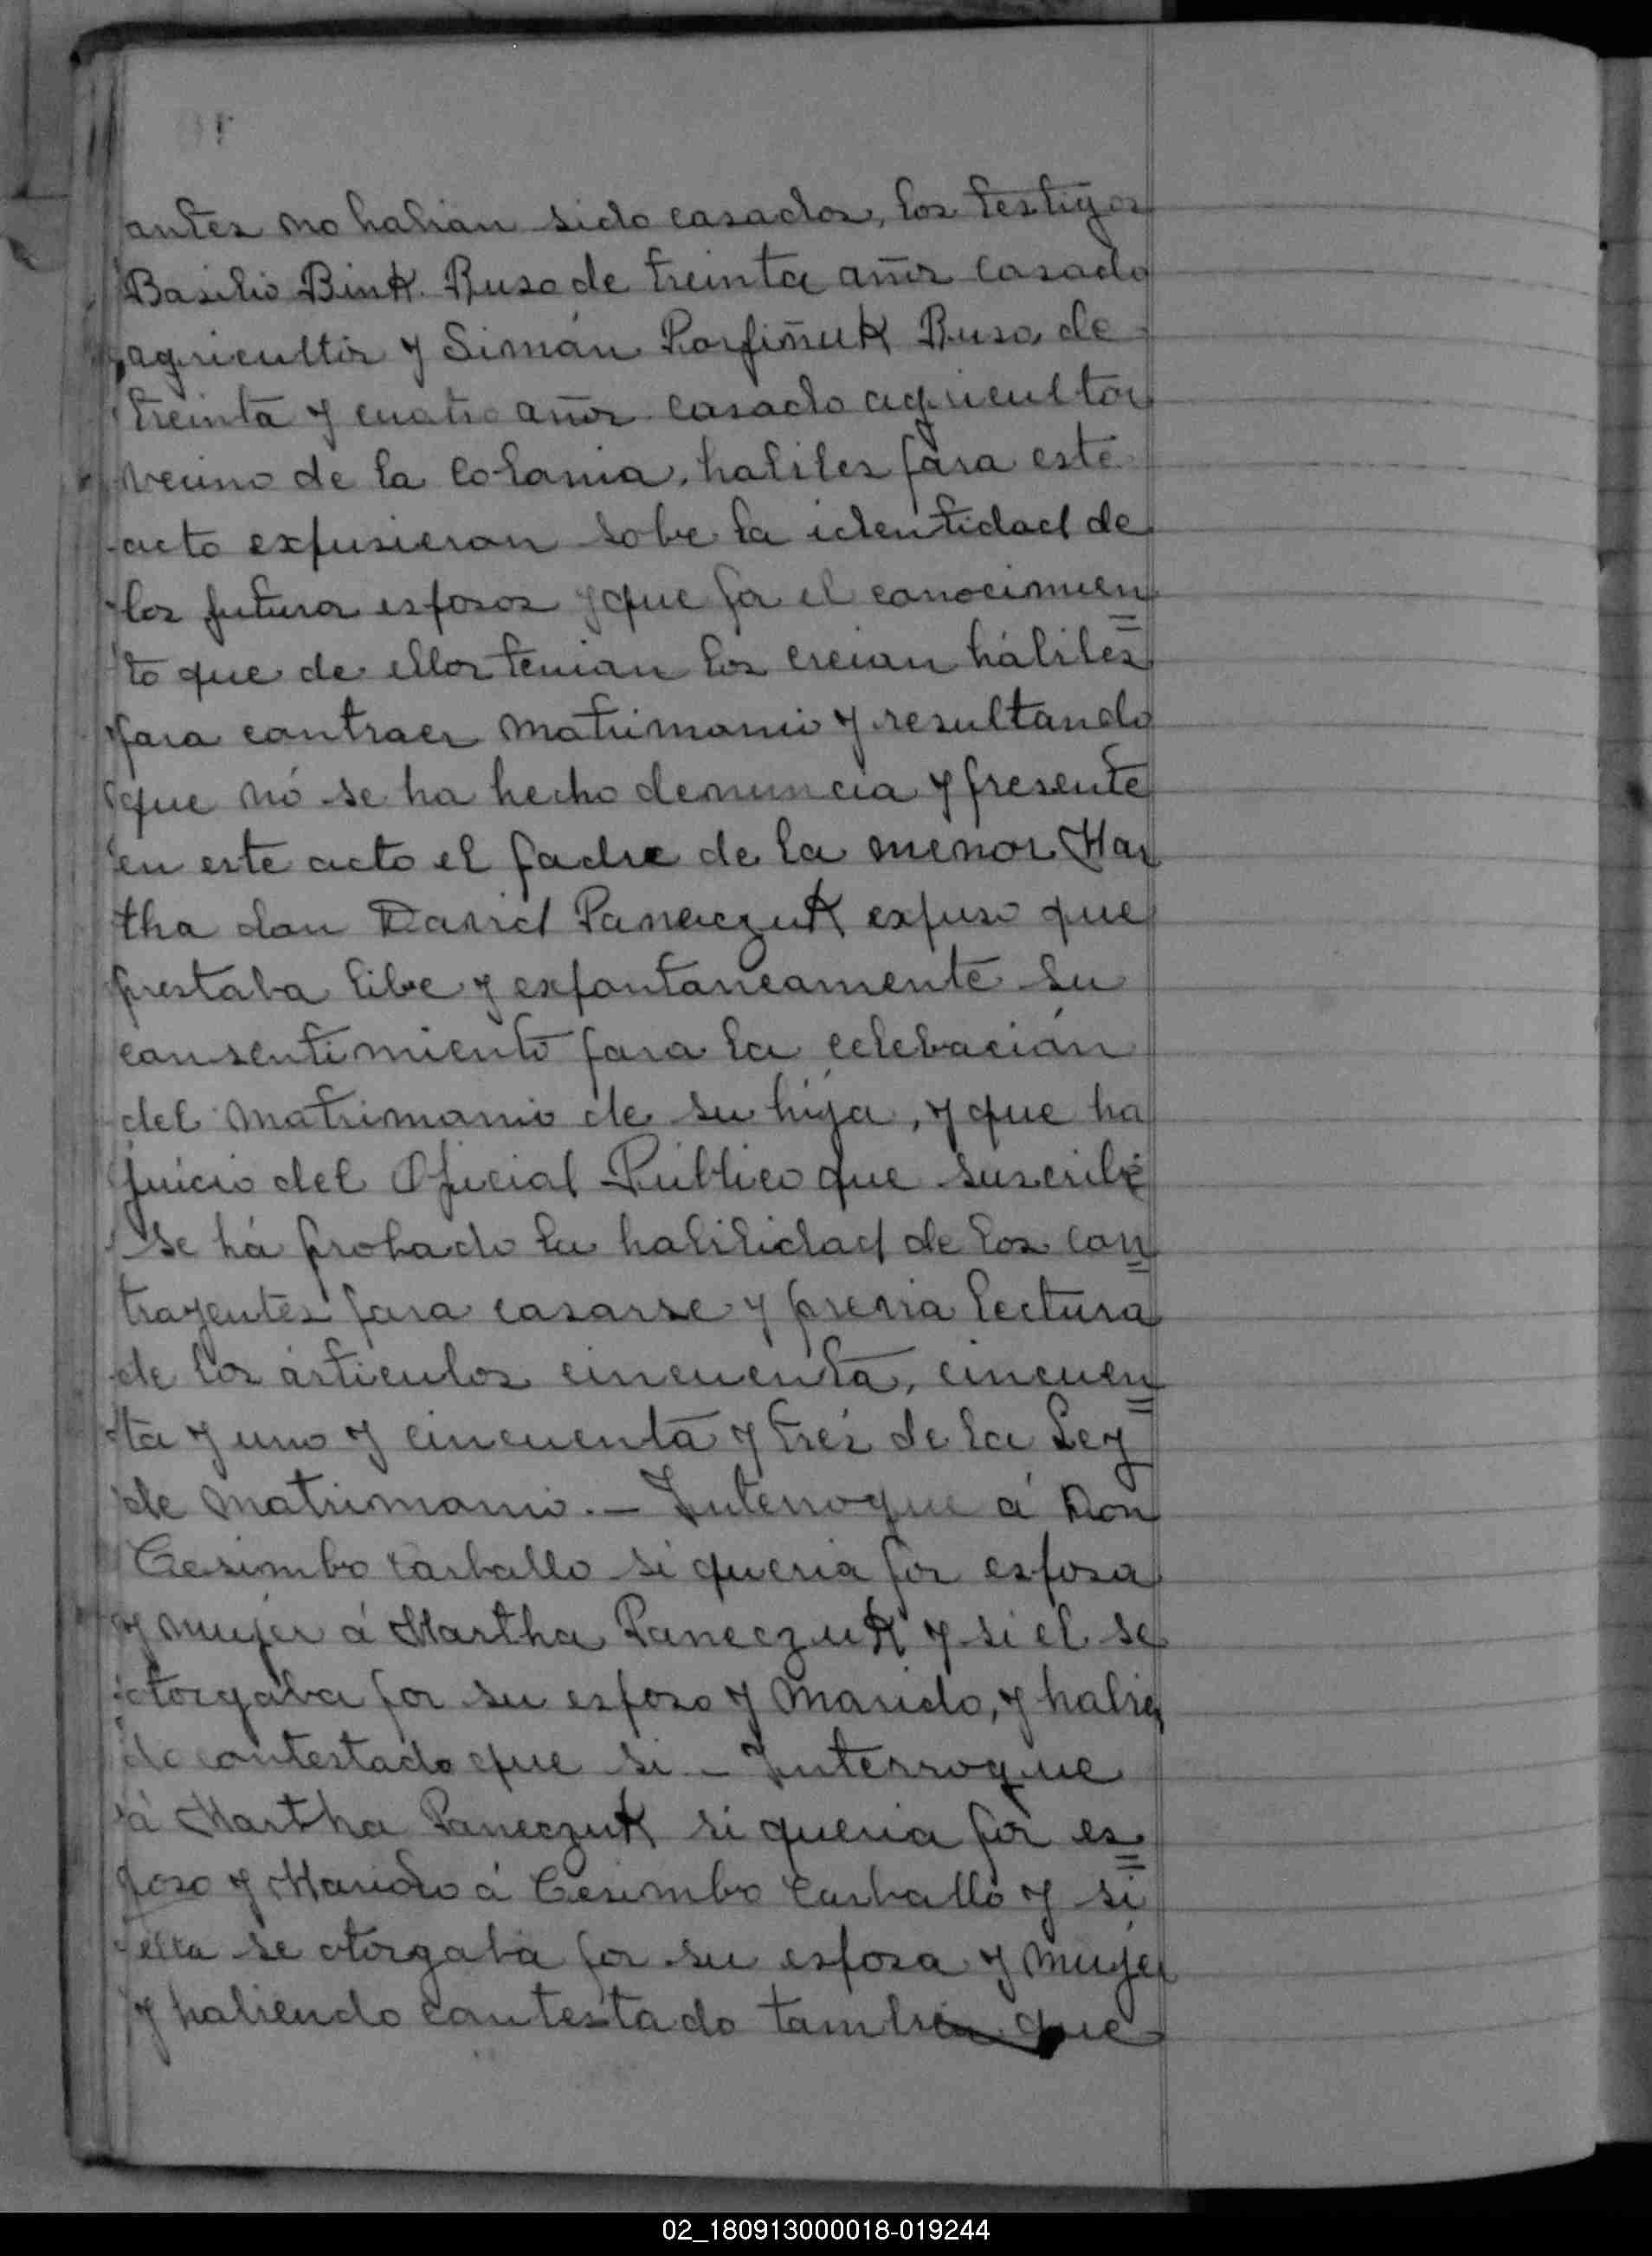 antes no habian sido casados, los testigos
Basilio Bink. Ruso de treinta años casado
agricultor y Simón Porfiñuk Ruso, de
treinta y cuatro años casado agricultor
vecino de la colonia, habiles para este
acto expusieron sobe la identidad de
los futuros esposos y que por el conocimien=
to que de ellos tenian los creian hábiles
para contraer matrimonio y resultando
que nó se ha hecho denuncia y presente
en este acto el padre de la menor Mar
tha don David Paneczuk expuso que
prestaba libe y expontaneamente su
consentimiento para la celebación
del matrimonio de su hija, y que ha
juicio del Oficial Público que suscribe
se há probado la habilidad de los con=
trayentes para casarse y previa lectura
de los árticulos cincuenta, cincuen=
ta y uno y cincuenta y trés de la Ley
de matrimonio. — Interrogue á Don
Cesimbo Carballo si queria por esposa
y mujer á Martha Paneczuk y si el se
otorgaba por su esposo y marido, y habien
do contestado que si — Interrogue
á Martha Paneczuk si queria por es=
poso y Marido á Cesimbo Carballo y si
ella se otorgaba por su esposa y mujer
y habiendo contestado tambien que
02_180913000018-019244